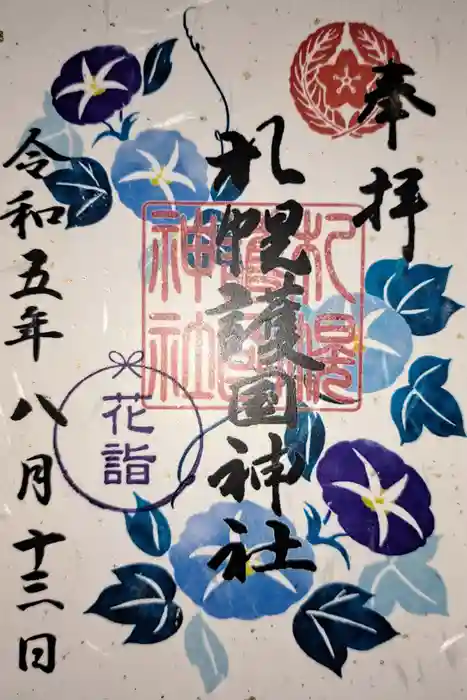 奉拝
札幌護国神社
札幌護国神社
花詣
令和五年八月十三日